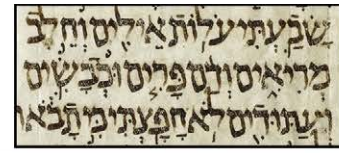 שָׂבַעְתִּי עֹלוֹת אֵילִים וְחֵלֶב
מְרִיאִים וְדַם פָּרִים וּכְבָשִׂים
וְעַתּוּדִים לֹא חָפָצְתִּי כִּי תָבֹאוּ